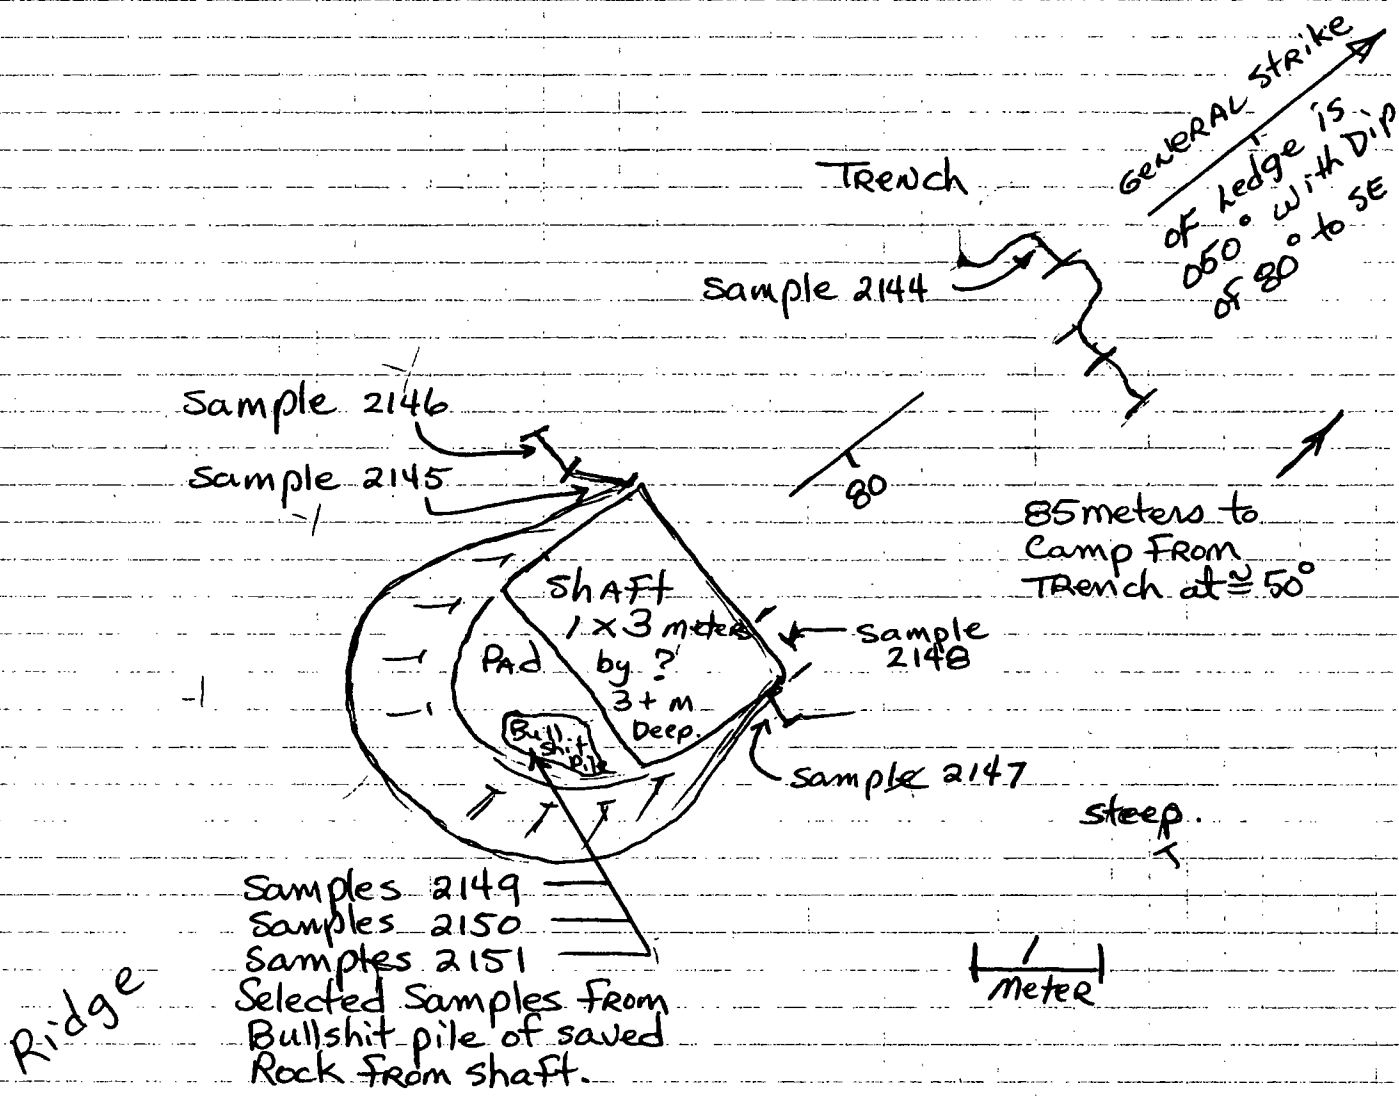 GENERAL Strike
of Ledge is
050° with Dip
of 80° to SE
Trench
Sample 2144
Sample 2146
Sample 2145
80
85 meters to
Camp From
Trench at ≅ 50°
Shaft
1 x 3 meters
by ?
3 + m
Deep.
Pad
Bull
shit
Pile
Sample
2148
Sample 2147
steep.
Samples 2149
Samples 2150
Samples 2151
Selected Samples From
Bullshit pile of saved
Rock From shaft.
1
Meter
Ridge